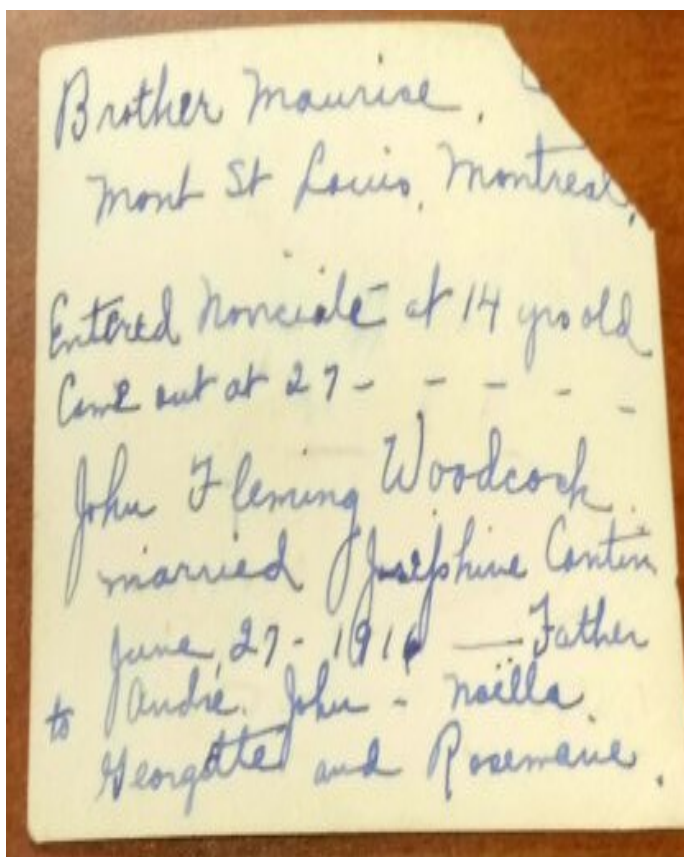 Brother Maurise,
Mont St Louis, Montreal,
Entered Noviciate at 14 yrs old
Came out at 27 - - - - -
John Fleming Woodcock
married Josephine Cantin
June, 27 - 1916 — Father
to André. John - Noëlla
Georgette and Rosemarie.